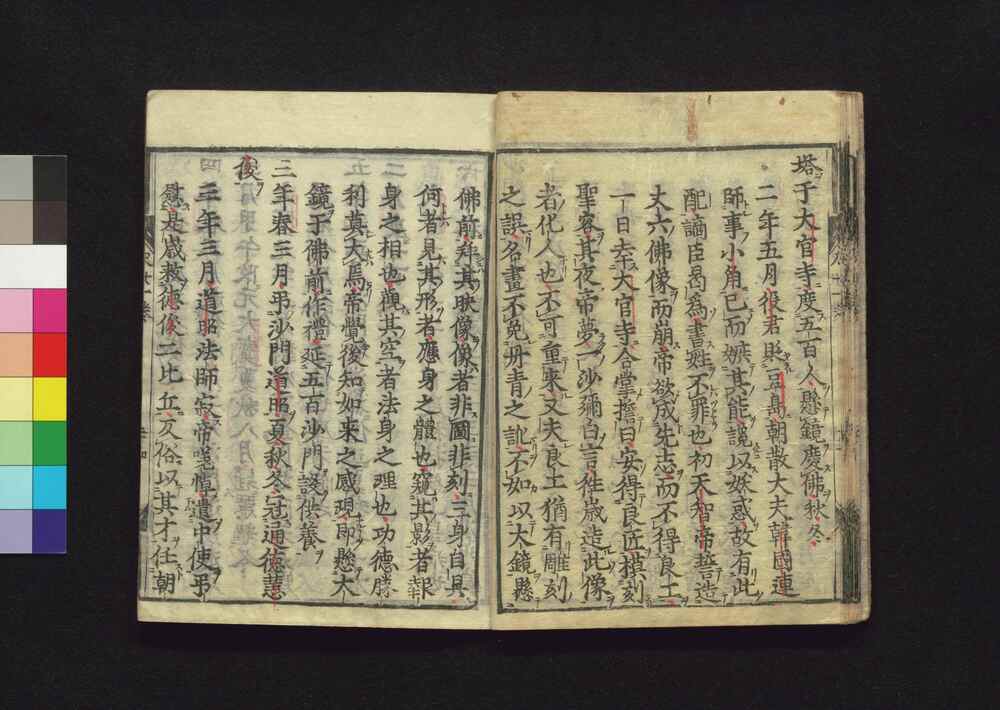 塔于大官寺度五百人懸鏡慶佛秋冬
二年五月役君貶
朝散大夫韓國連
師事小角已而嫉其能讒以妖惑故有此
配謫臣曷為書姓不罪也初天智帝誓造
丈六佛像而崩帝欲成先志而不得良工
一日幸大官寺合掌誓曰安得良匠模刻
聖容其夜帝夢一沙彌白言往歲造此像
者化人也不可重來又夫良工猶有雕刻
之誤名畫不免丹青之訛不如以大鏡懸
佛前拜其映像像者非圖非刻三身自具
何者見其形者應身之體也窺其影者報
身之相也觀其空者法身之理也功德勝
利莫大焉帝覺後知如来之感現即懸大
鏡于佛前作禮延五百沙門設供養
三年春三月弔沙門道昭夏秋冬冠通德慧
俊
三年三月道昭法師寂帝嗟悼遣中使弔
慰是歲救德俊二比丘反俗以其才任朝